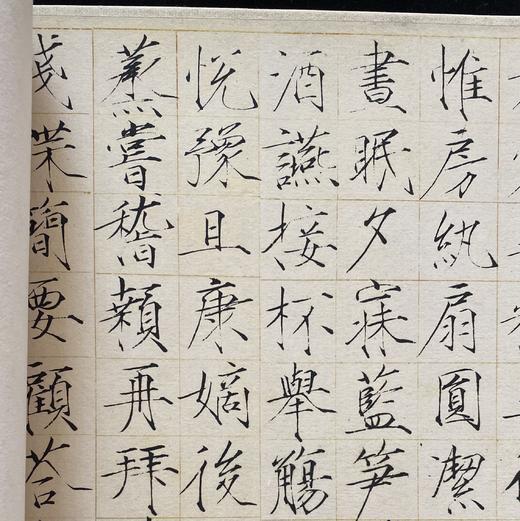 惟房紈扇圓潔
晝眠夕寐藍笋
酒讌接杯舉觴
悅豫且康嫡後
蒸嘗稽顙再拜
簡要顧荅